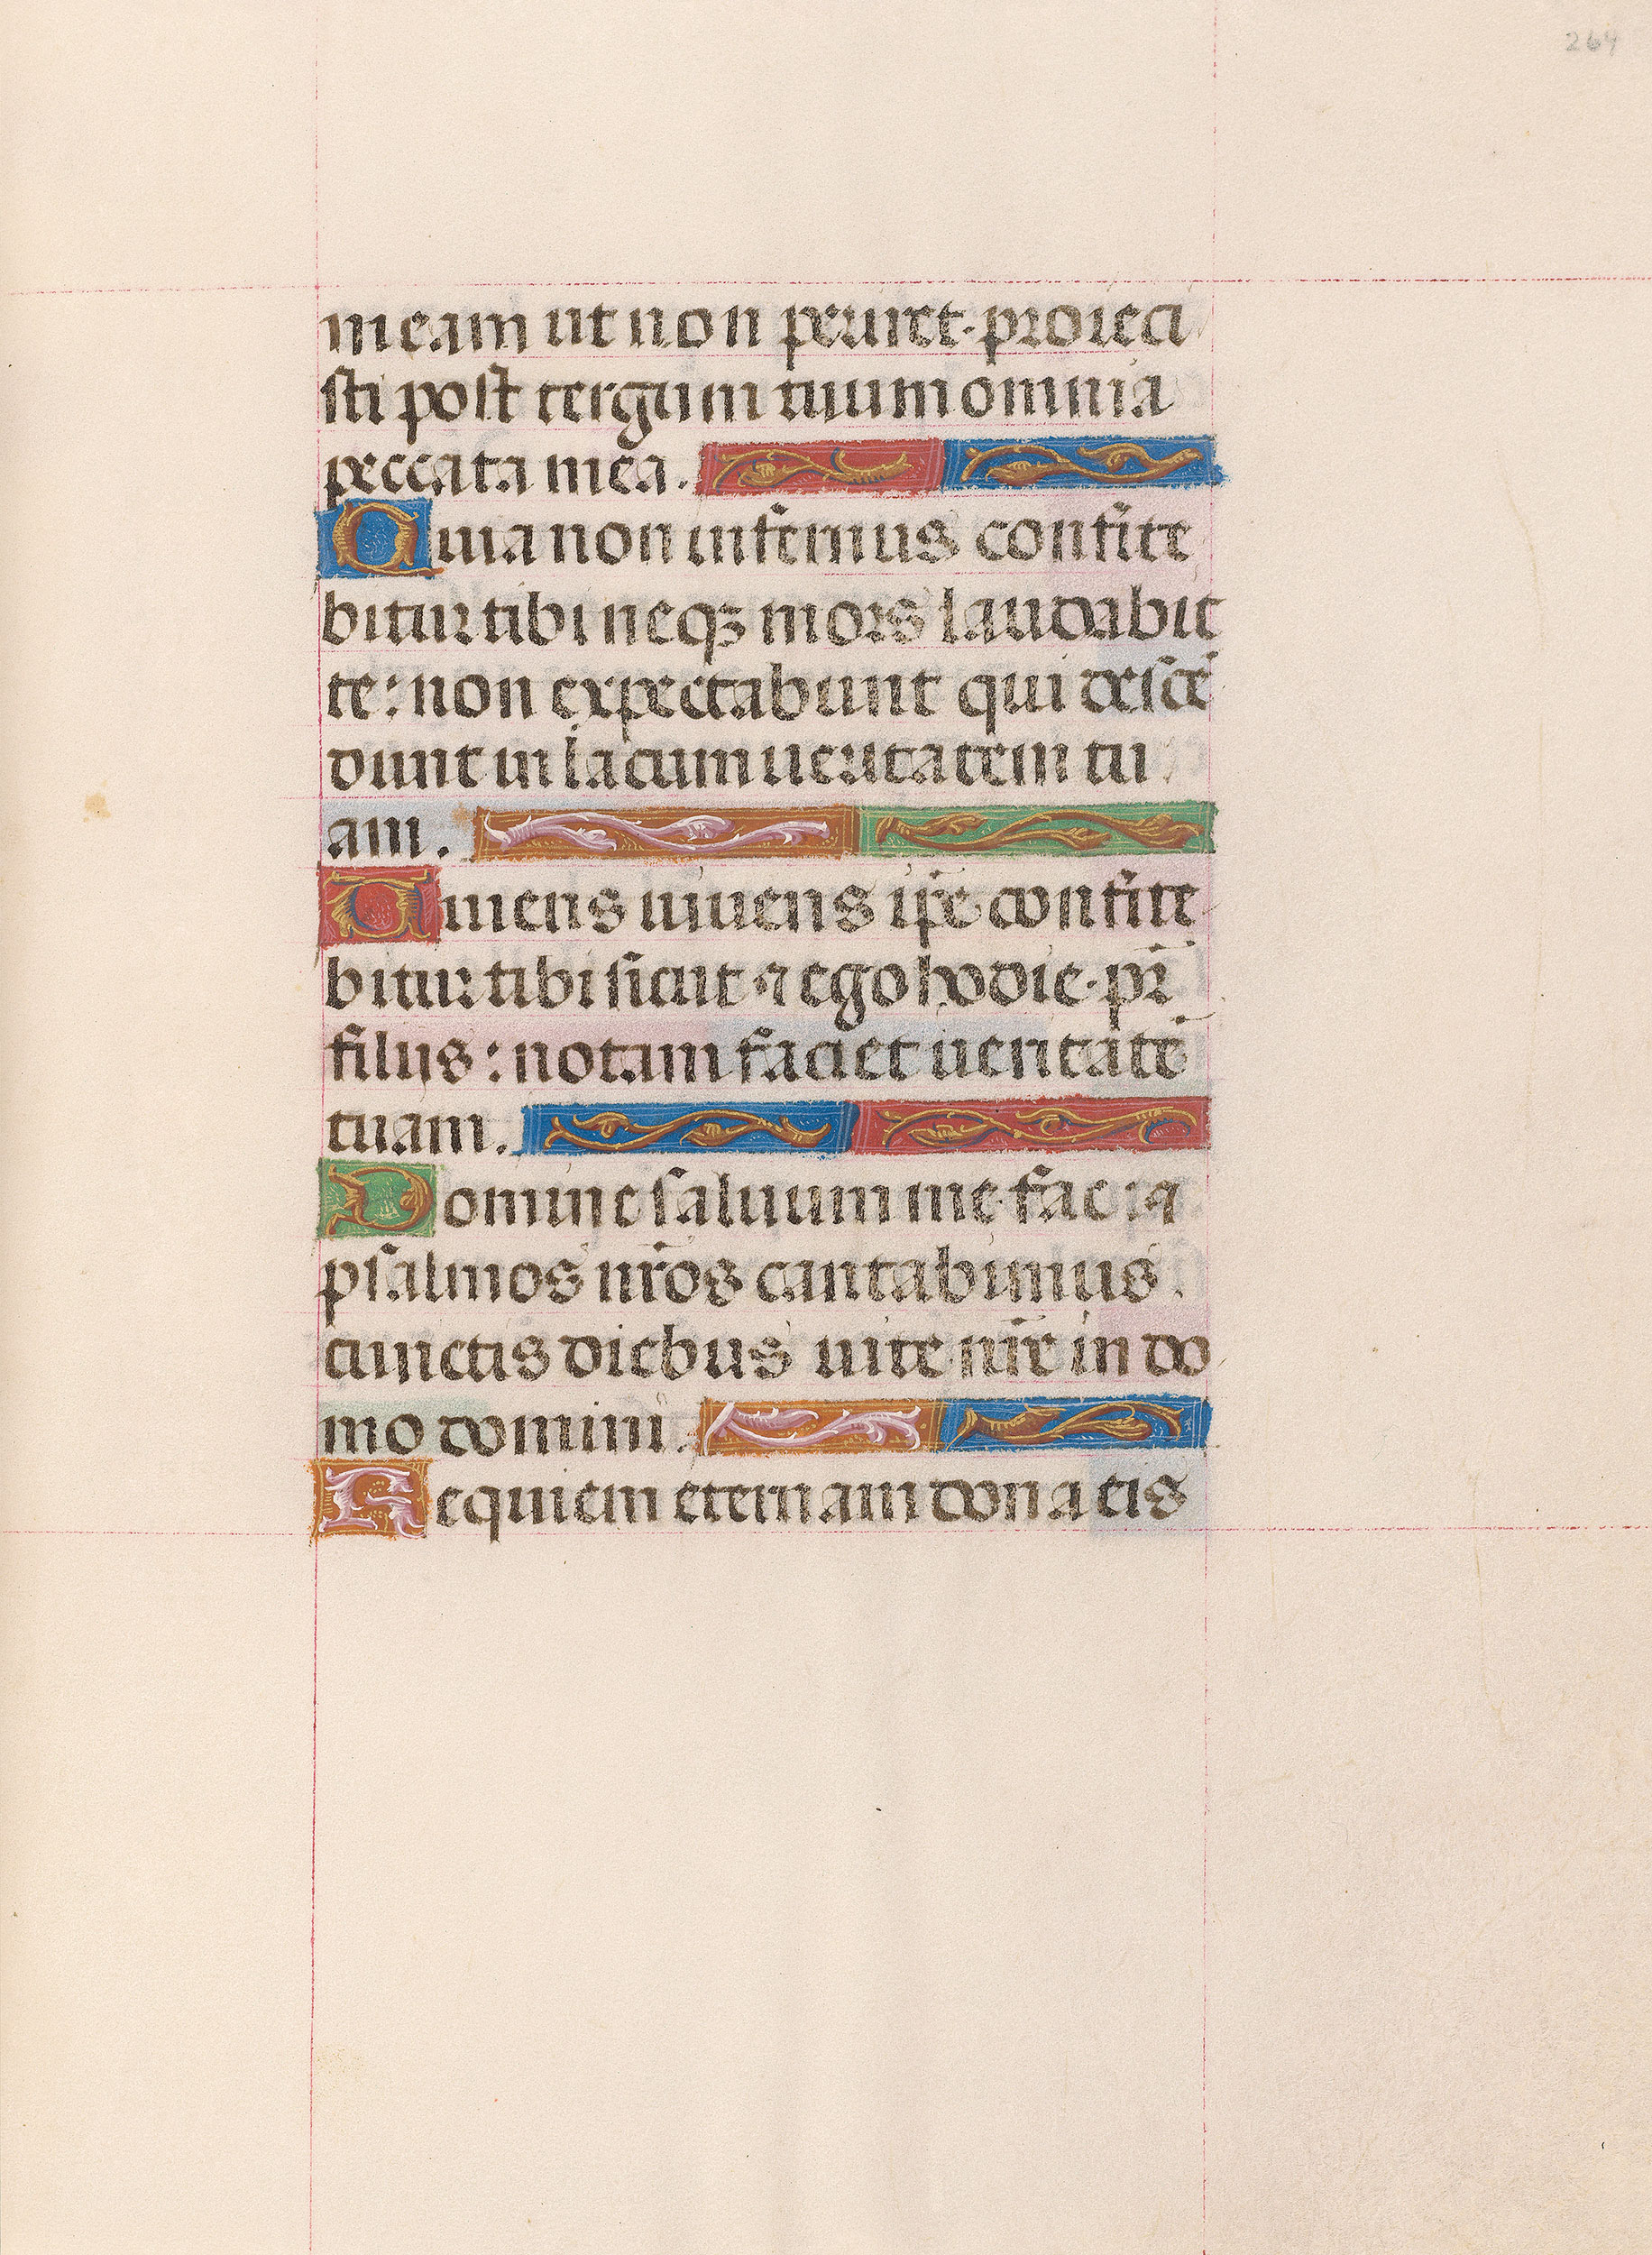 264
meam ut non periret· proieci
sti post tergum tuum omnia
peccata mea.
Quia non infernus confite
bitur tibi neqꝫ mors laudabit
te: non expectabunt qui descē
dunt in lacum ueritatem tu
am.
Uiuens uiuens ip̄e confite
bitur tibi sicut ⁊ ego hodie· pr̄
filiis: notam faciet ueritatē
tuam.
Domine saluum me fac: ⁊
psalmos nr̄os cantabimus
cunctis diebus uite nr̄e in do
mo domini.
Requiem eternam dona eis